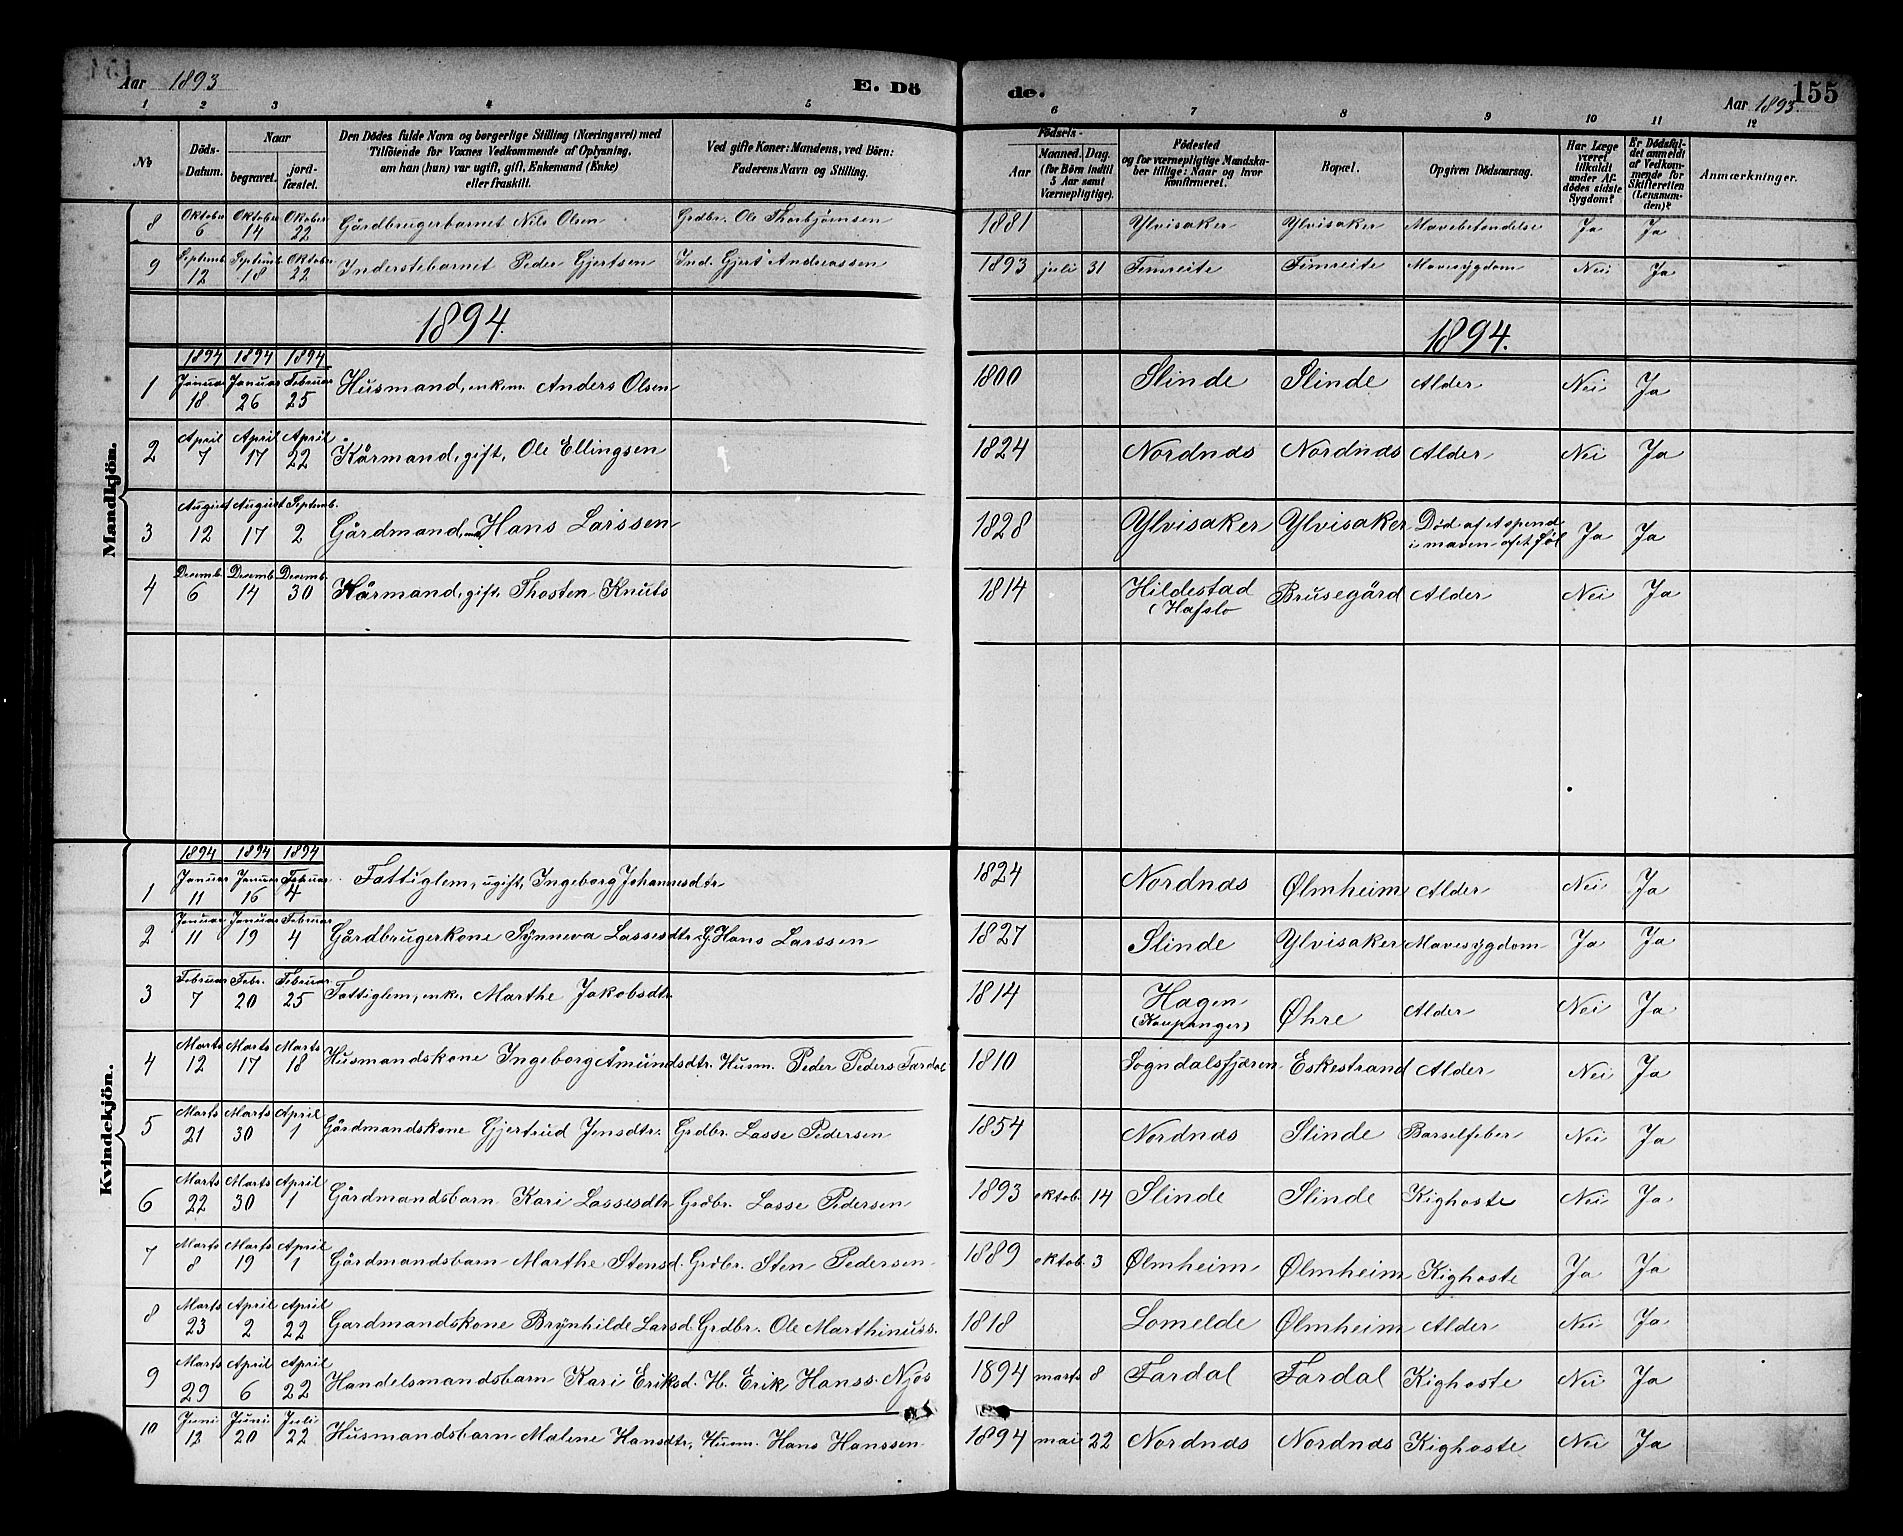 Aar 1893 E. Dö de. Aar 1893. 155
1 2 3 4 5 6 7 8 9 10 11 12
No Döds-Datum. Naar begravet. jord-fæstet. Den Dödes fulde Navn og borgerlige Stilling (Næringsvei) med Tilföiende for Voxnes Vedkommende af Oplysning, om han (hun) var ugift, gift, Enkemand (Enke) eller fraskilt. Ved gifte Koner: Mandens, ved Börn: Faderens Navn og Stilling. Födsels- Aar Maaned. Dag. (for Börn indtil 5 Aar samt Værnepligtige). Födested og for værnepligtige Mandskaber tillige: Naar og hvor konfirmeret. Bopæl. Opgiven Dödsaarsag. Har Læge været tilkaldt under Afdödes sidste Sygdom? Er Dödsfaldet anmeldt af Vedkommende for Skifteretten (Lensmanden)? Anmærkninger.
Mandkjön.
8 Oktober 6 Oktober 14 Oktober 22 Gårdbrugerbarnet Nils Olsen Grdbr. Ole Thorbjørnsen 1881 Ylvisaker Ylvisaker Mavebetændelse Ja Ja
9 Septemb. 12 Septemb. 18 Oktober 22 Inderstebarnet Peder Gjertsen Ind. Gjert Andreassen 1893 juli 31 Fimreite Fimreite Mavesygdom Nei Ja
1894. 1894.
1894 1894 1894
1 Januar 18 Januar 26 Februar 25 Husmand, enkem. Anders Olsen 1800 Slinde Slinde Alder Nei Ja
2 April 7 April 17 April 22 Kårmand, gift, Ole Ellingsen 1824 Nordnæs Nordnæs Alder Nei Ja
3 August 12 August 17 Septemb. 2 Gårdmand, Hans Larssen 1828 Ylvisaker Ylvisaker Død af et spend i maven af et føl Ja Ja
4 Decemb. 6 Decemb. 14 Decemb. 30 Kårmand, gift, Thosten Knuts 1814 Hildestad (Hafslo Brusegård Alder Nei Ja
Kvindekjön.
1894 1894 1894
1 Januar 11 Januar 16 Februar 4 Fattiglem, ugift, Ingeborg Johannesdtr 1824 Nordnæs Ølmheim Alder Nei Ja
2 Januar 11 Januar 19 Februar 4 Gårdbrugerkone Synneva Lassesdtr G. Hans Larssen 1827 Slinde Ylvisaker Mavesygdom Ja Ja
3 Februar 7 Febr. 20 Februar 25 Fattiglem, enke, Marthe Jakobsdtr. 1814 Hagen (Kaupanger) Øhre Alder Nei Ja
4 Marts 12 Marts 17 Marts 18 Husmandskone Ingeborg Åmundsdtr. Husm. Peder Peders Fardal 1810 Sogndalsfjæren Eskestrand Alder Nei Ja
5 Marts 21 Marts 30 April 1 Gårdmandskone Gjertrud Jensdtr. Grdbr. Lasse Pedersen 1854 Nordnæs Slinde Barselfeber Nei Ja
6 Marts 22 Marts 30 April 1 Gårdmandsbarn Kari Lassesdtr Grdbr. Lasse Pedersen 1893 oktob. 14 Slinde Slinde Kighoste Nei Ja
7 Marts 8 Marts 19 April 1 Gårdmandsbarn Marthe Stensd. Grdbr. Sten Pedersen 1889 oktob. 3 Ølmheim Ølmheim Kighoste Ja Ja
8 Marts 23 April 2 April 22 Gardmandskone Brynhilde Larsd. Grdbr. Ole Marthinuss. 1818 Lomelde Ølmheim Alder Nei Ja
9 Marts 29 April 6 April 22 Handelsmandsbarn Kari Eriksd. H. Erik Hanss. Njøs 1894 marts 8 Fardal Fardal Kighoste Nei Ja
10 Juni 12 Juni 20 Juli 22 Husmandsbarn Malene Hansdtr, Husm. Hans Hanssen 1894 mai 22 Nordnæs Nordnæs Kighoste Nei Ja